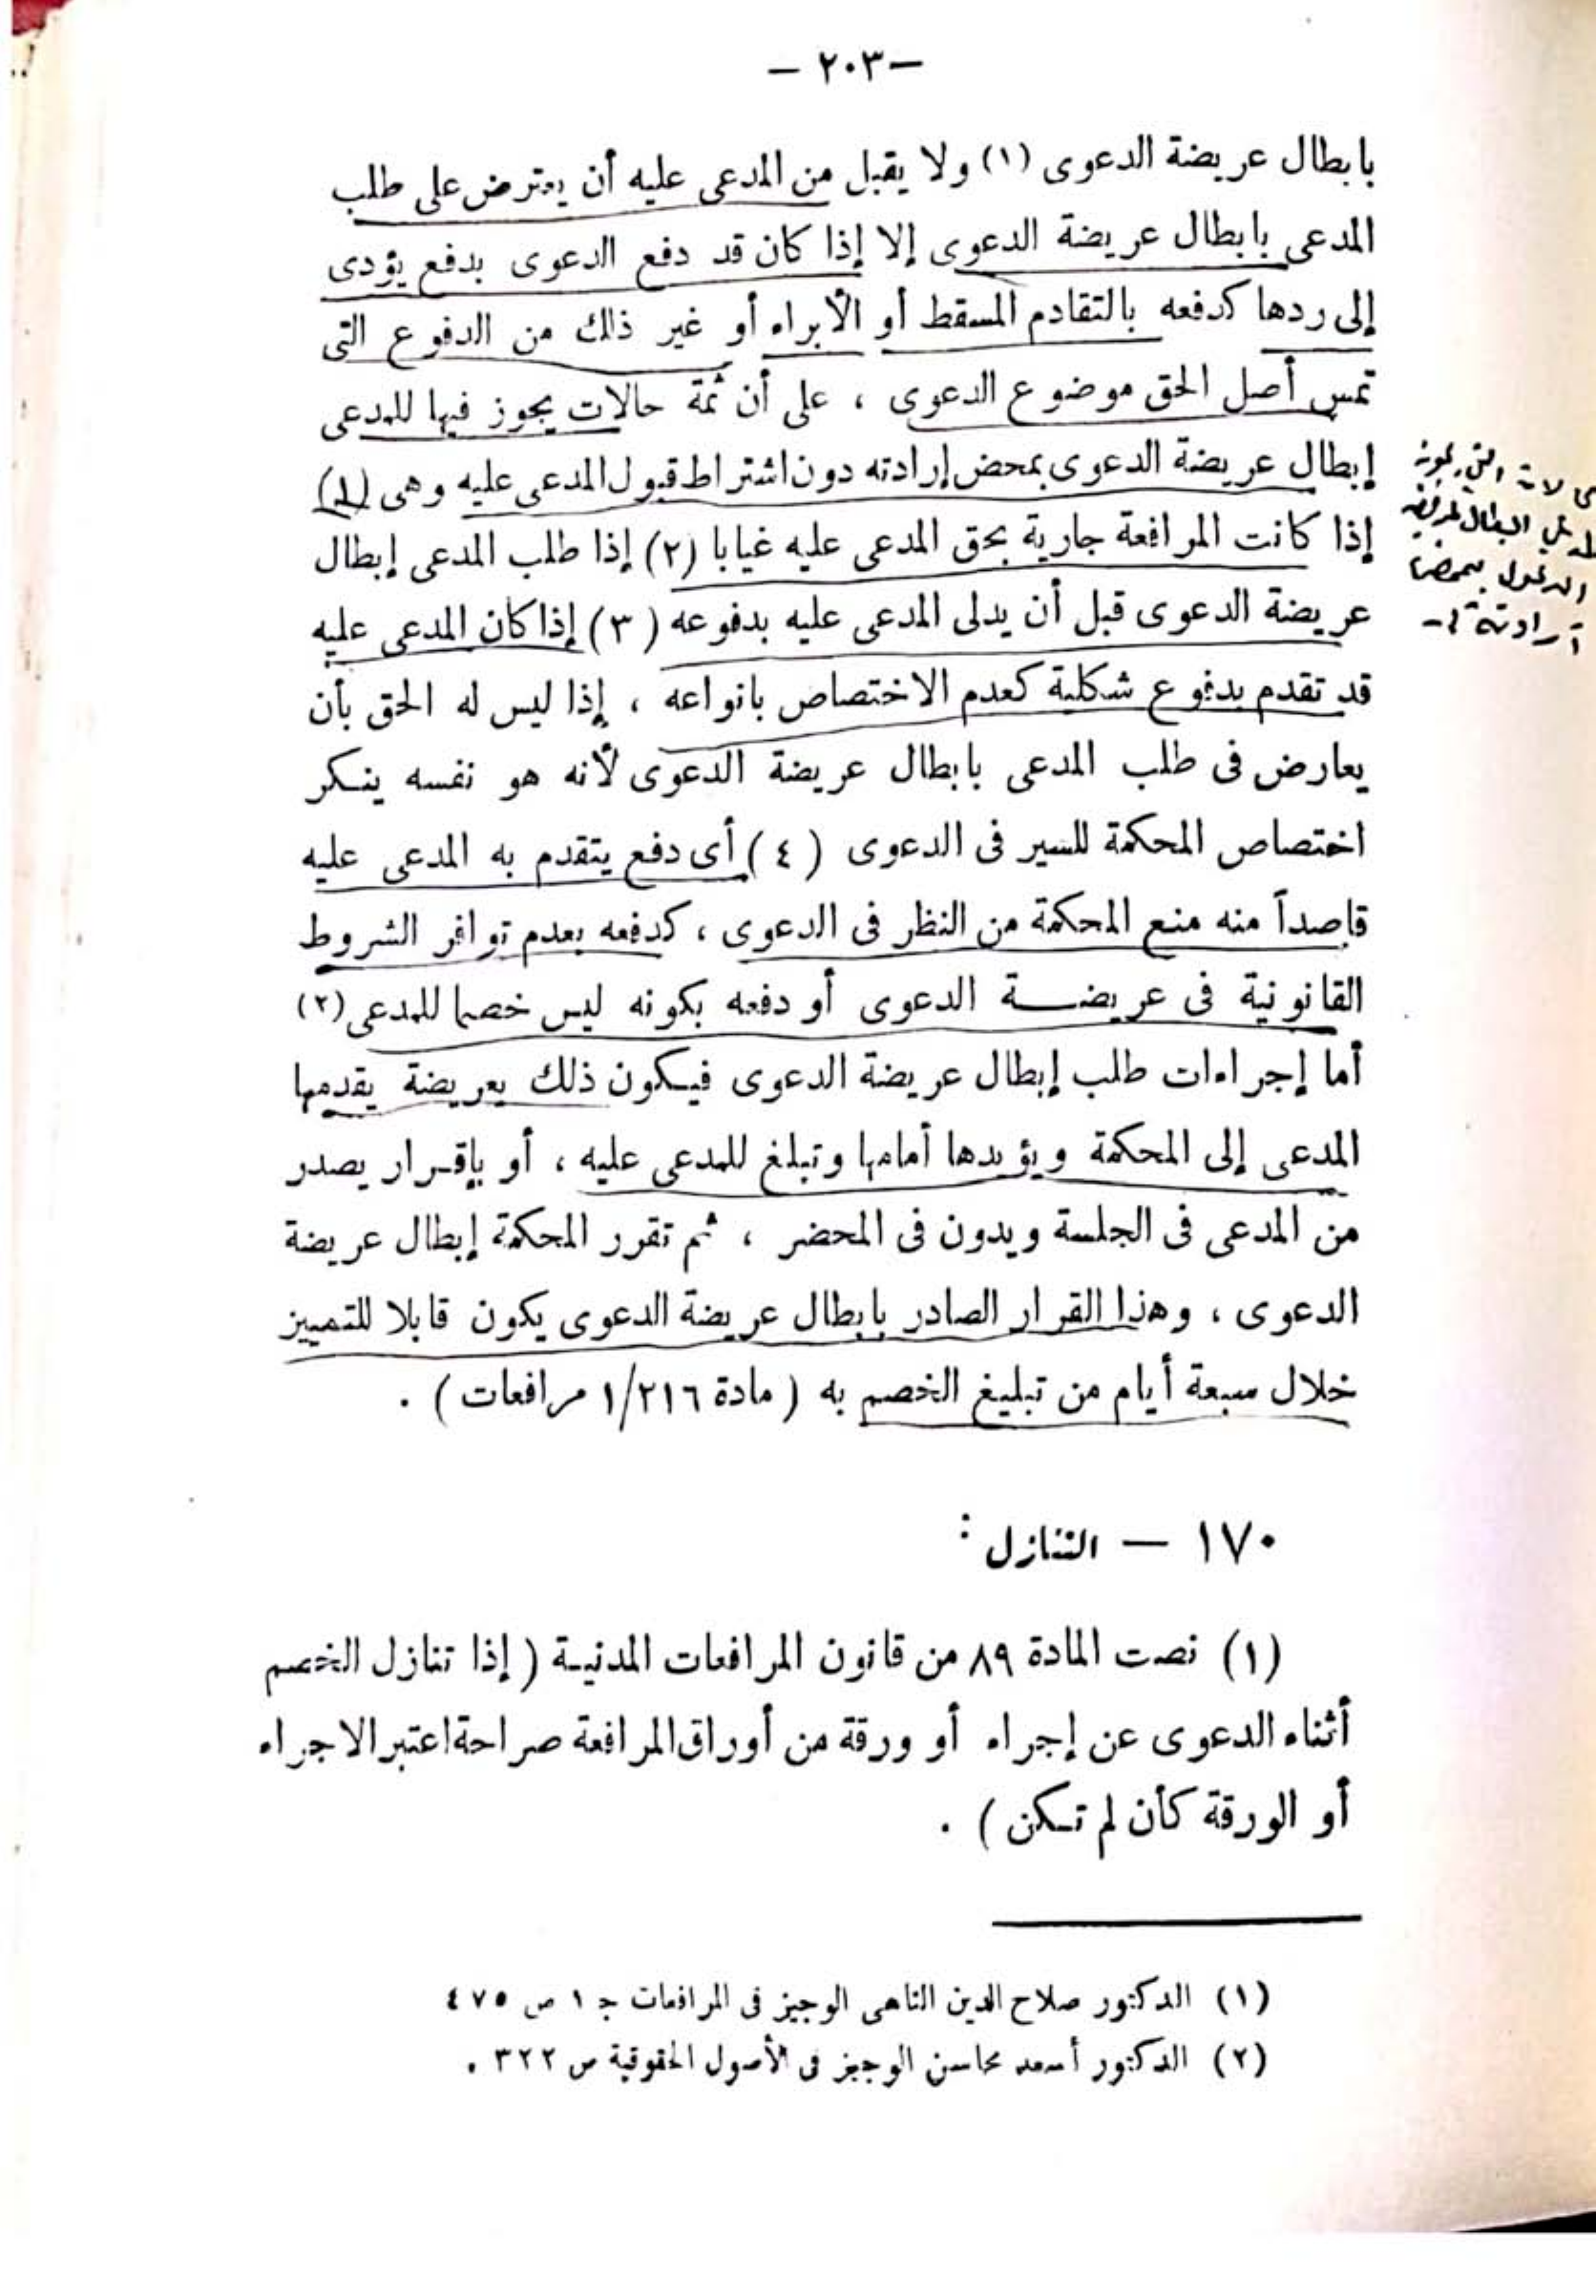 — ٢٠٣ —
بابطال عريضة الدعوى (١) ولا يقبل من المدعى عليه أن يعترض على طلب
المدعى بابطال عريضة الدعوى إلا إذا كان قد دفع الدعوى بدفع يؤدى
إلى ردها كدفعه بالتقادم المسقط أو الأبراء أو غير ذلك من الدفوع التى
تمس أصل الحق موضوع الدعوى ، على أن ثمة حالات يجوز فيها للمدعى
إبطال عريضة الدعوى بمحض إرادته دون اشتراط قبول المدعى عليه وهى (١)
إذا كانت المرافعة جارية بحق المدعى عليه غيابا (٢) إذا طلب المدعى إبطال
عريضة الدعوى قبل أن يدلى المدعى عليه بدفوعه (٣) إذا كان المدعى عليه
قد تقدم بدفوع شكلية كعدم الاختصاص بانواعه ، إذا ليس له الحق بأن
يعارض فى طلب المدعى بابطال عريضة الدعوى لأنه هو نفسه ينكر
اختصاص المحكمة للسير فى الدعوى (٤) أى دفع يتقدم به المدعى عليه
قاصداً منه منع المحكمة من النظر فى الدعوى ، كدفعه بعدم توافر الشروط
القانونية فى عريضة الدعوى أو دفعه بكونه ليس خصما للمدعى (٢)
أما إجراءات طلب إبطال عريضة الدعوى فيكون ذلك بعريضة يقدمها
المدعى إلى المحكمة ويؤيدها أمامها وتبلغ للمدعى عليه ، أو بإقرار يصدر
من المدعى فى الجلسة ويدون فى المحضر ، ثم تقرر المحكمة إبطال عريضة
الدعوى ، وهذا القرار الصادر بابطال عريضة الدعوى يكون قابلا للتمييز
خلال سبعة أيام من تبليغ الخصم به ( مادة ١/٢١٦ مرافعات ) .
١٧٠ — التنازل :
(١) نصت المادة ٨٩ من قانون المرافعات المدنية ( إذا تنازل الخصم
أثناء الدعوى عن إجراء أو ورقة من أوراق المرافعة صراحة اعتبر الاجراء
أو الورقة كأن لم تكن ) .
(١) الدكتور صلاح الدين الناهى الوجيز فى المرافعات ج ١ ص ٤٧٥
(٢) الدكتور أسعد محاسن الوجيز فى الأصول الحقوقية ص ٣٢٢ .